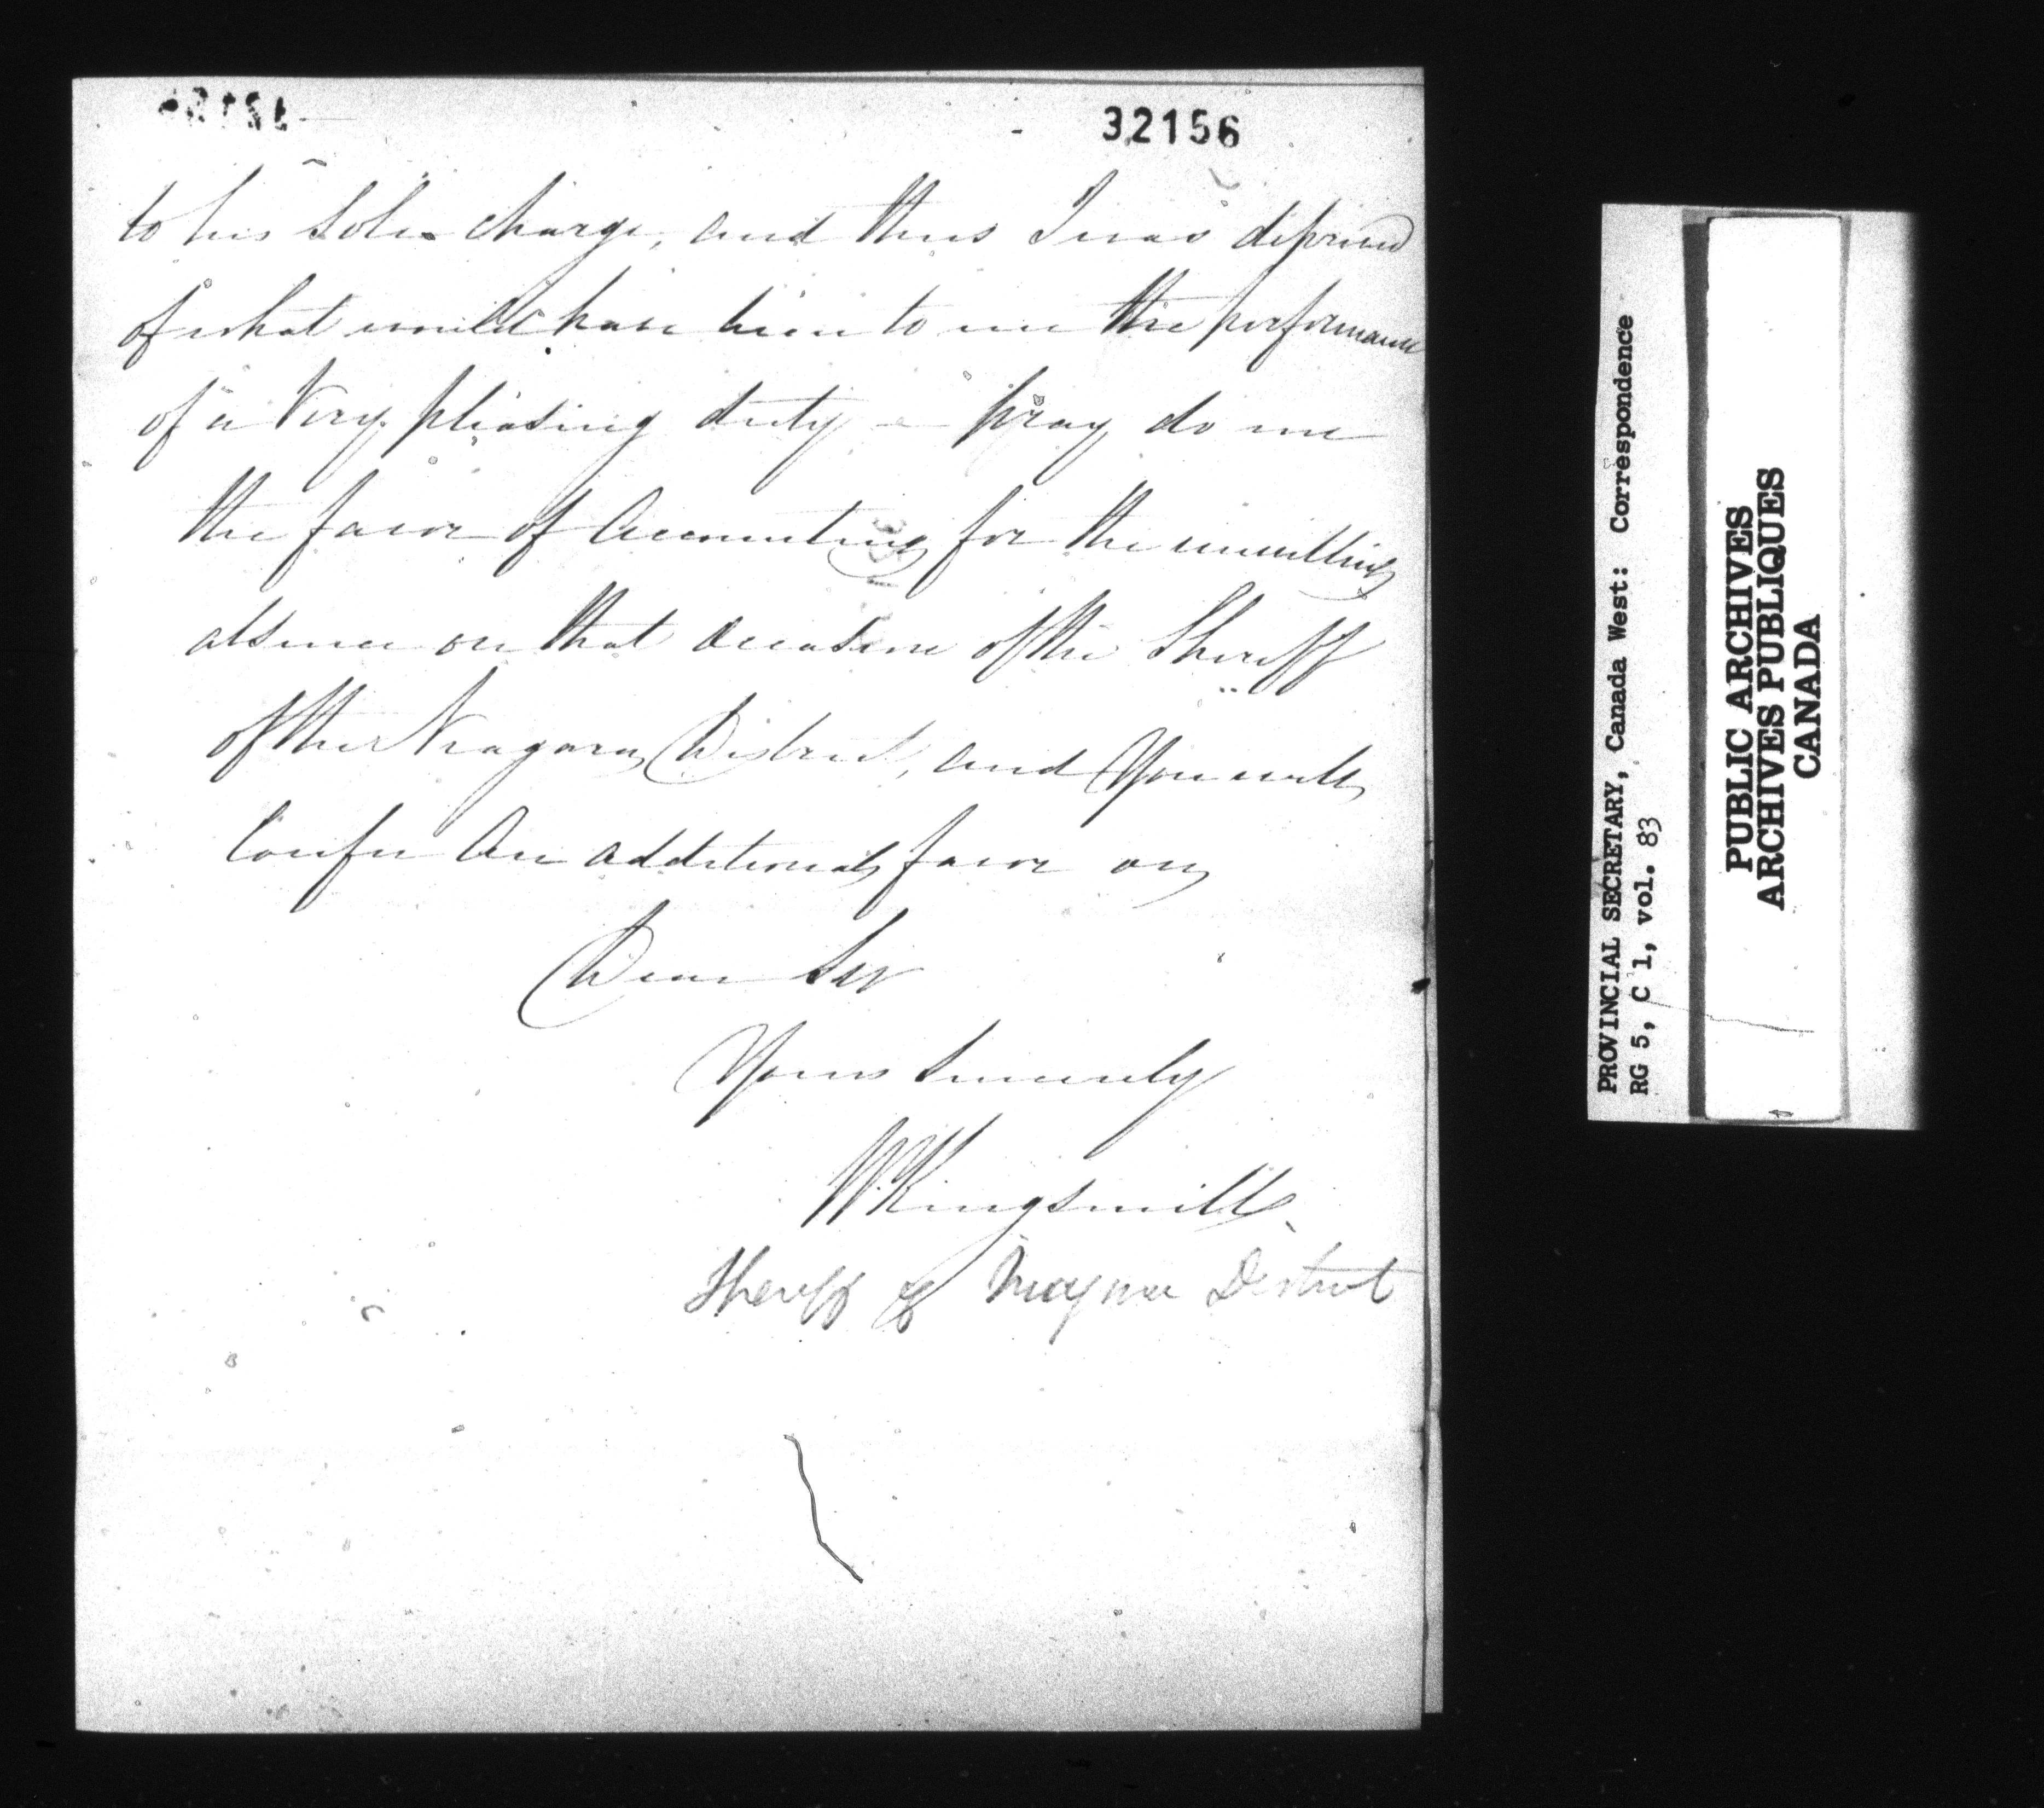 32156
to his sole charge, and thus I was deprived
of what would have been to me the performance
of a very pleasing duty — pray do me
the favor of accounting for the unwilling
absence on that occasion of the Sheriff
of the Niagara District, and you will
confer an additional favor on
Dear Sir
Yours Sincerely
W Kingsmill
Sheriff of Niagara District
PROVINCIAL SECRETARY, Canada West: Correspondence
RG 5, C 1, vol. 83
PUBLIC ARCHIVES
ARCHIVES PUBLIQUES
CANADA